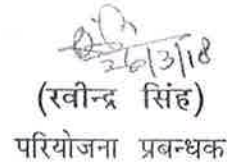 26/3/18
(रवीन्द्र सिंह)
परियोजना प्रबन्धक